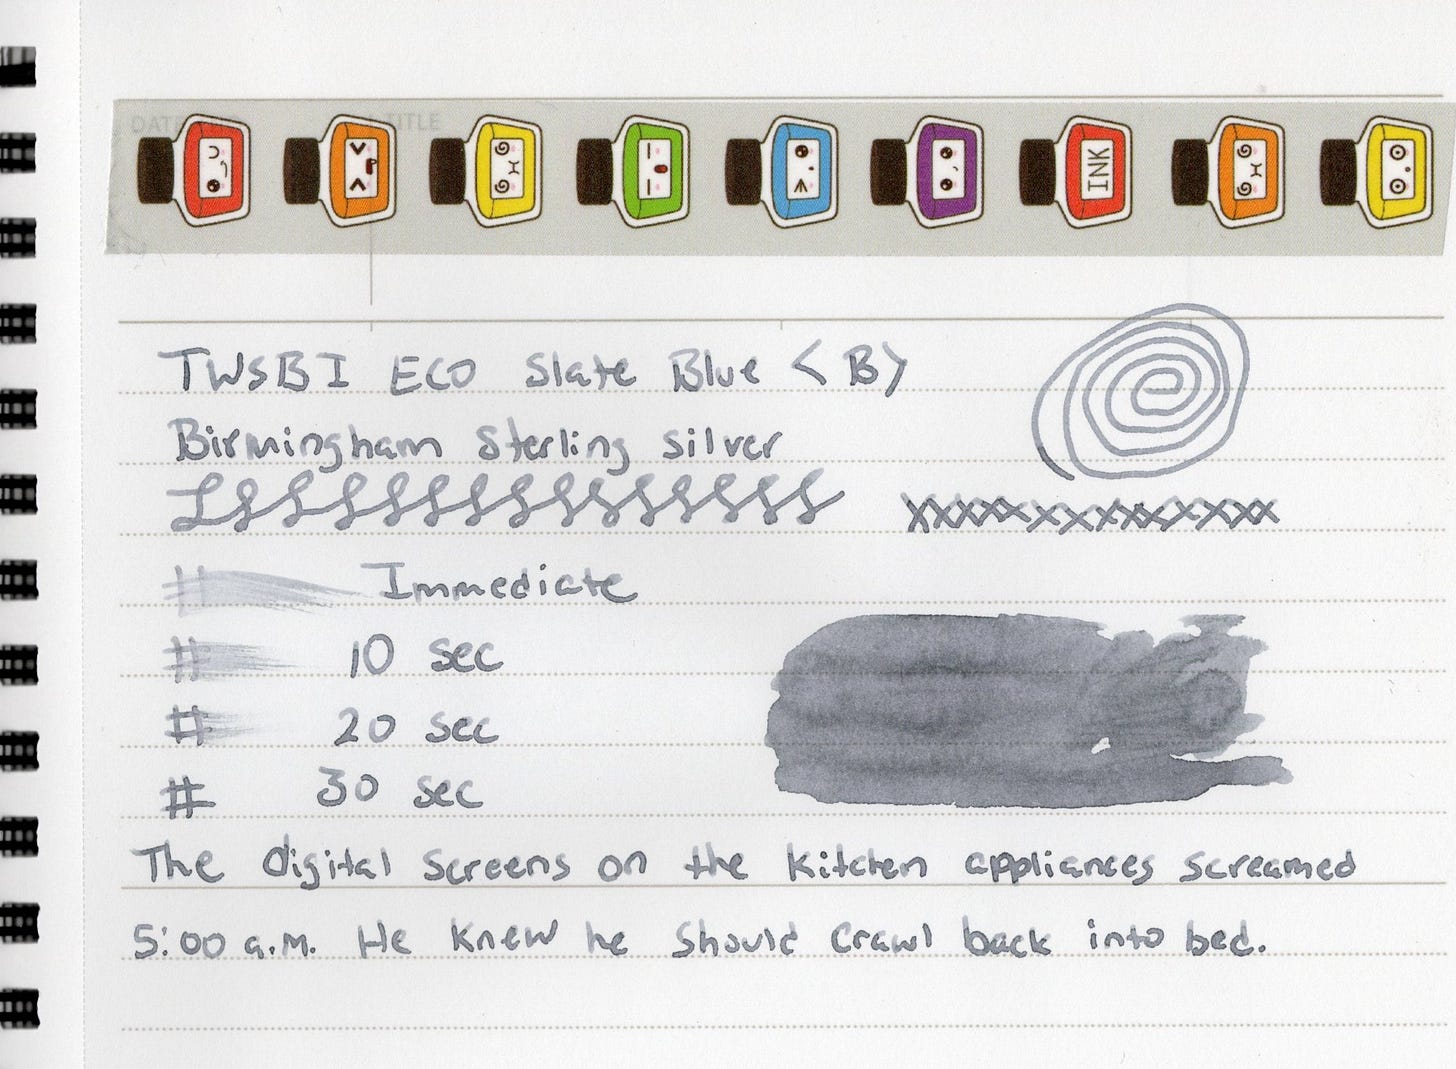 DATE TITLE
INK
TWSBI ECO Slate Blue <B>
Birmingham Sterling Silver
# Immediate
# 10 sec
# 20 sec
# 30 sec
The digital screens on the kitchen appliances screamed
5:00 a.m. He knew he should crawl back into bed.